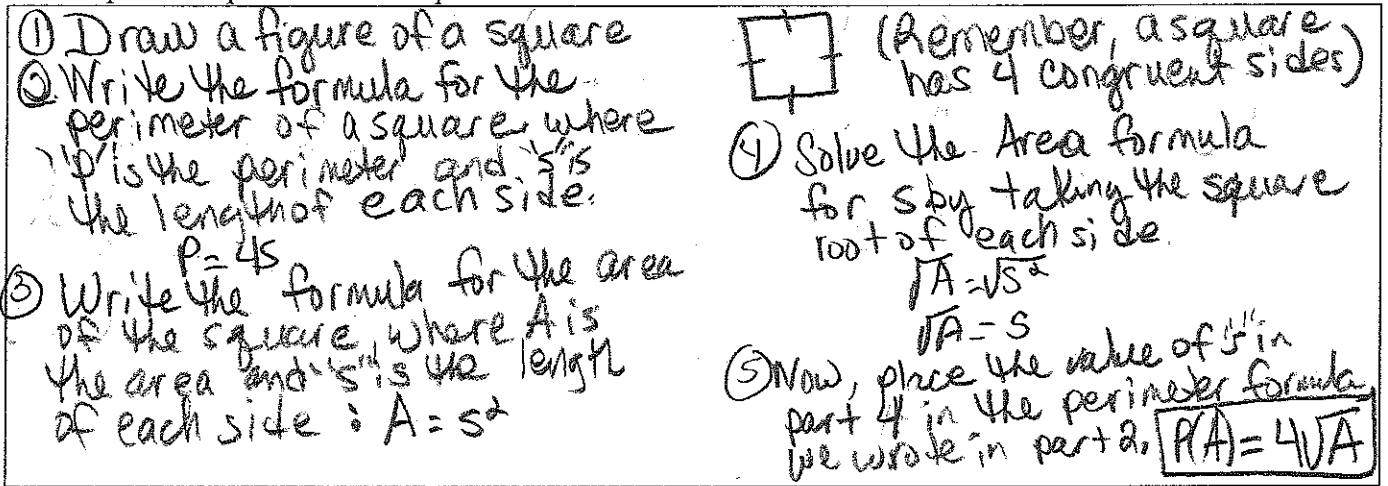 ① Draw a figure of a square
② Write the formula for the
perimeter of a square, where
"P" is the perimeter and "s" is
the length of each side.
P = 4s
③ Write the formula for the area
of the square, where A is
the area and "s" is the length
of each side : A = s²
(Remember, a square
has 4 congruent sides)
④ Solve the Area formula
for s by taking the square
root of each side.
√A = √s²
√A = s
⑤ Now, place the value of "s" in
part 4 in the perimeter formula
we wrote in part 2. P(A) = 4√A